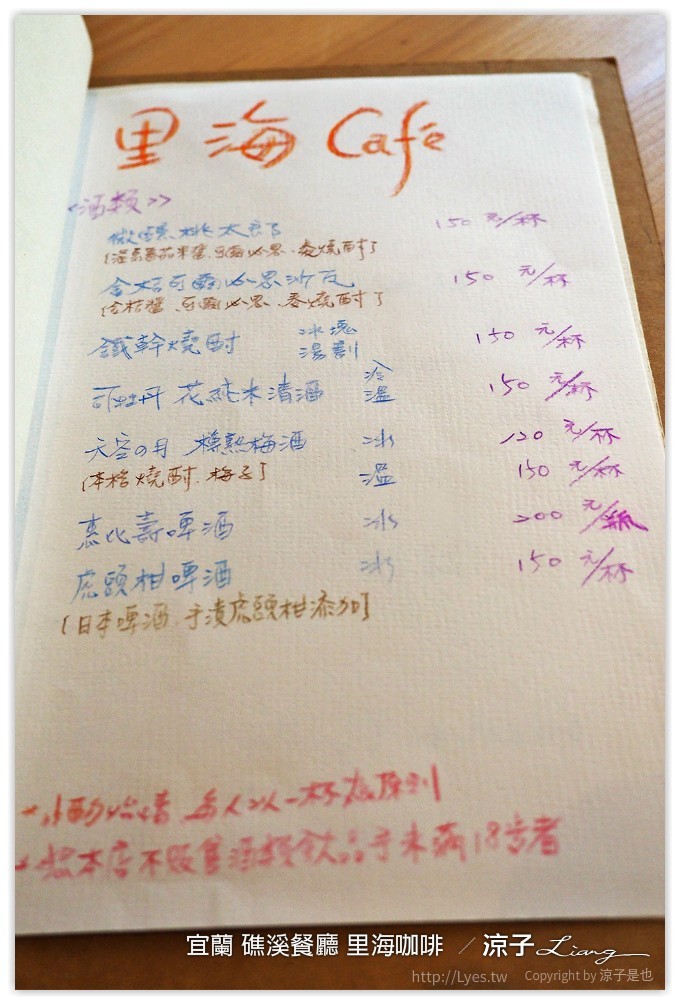 里海 Café
<酒類>>
微醺桃太郎 150 元/杯
(溫亭番茄果醬、可爾必思、麥燒酎)
金桔可爾必思沙瓦 150 元/杯
(金桔醬、可爾必思、麥燒酎)
鐵幹燒酎 冰塊 湯割 150 元/杯
司牡丹 花純米清酒 冷 溫 150 元/杯
天空の月 樽熟梅酒 冰 120 元/杯
(本格燒酎、梅子) 溫 150 元/杯
惠比壽啤酒 冰 200 元/瓶
虎頭柑啤酒 冰 150 元/杯
(日本啤酒、手漬虎頭柑添加)
*小酌怡情,每人以一杯為原則
*本店不販售酒類飲品予未滿18歲者
宜蘭 礁溪餐廳 里海咖啡 ／涼子Liang
http://Lyes.tw Copyright by 涼子是也